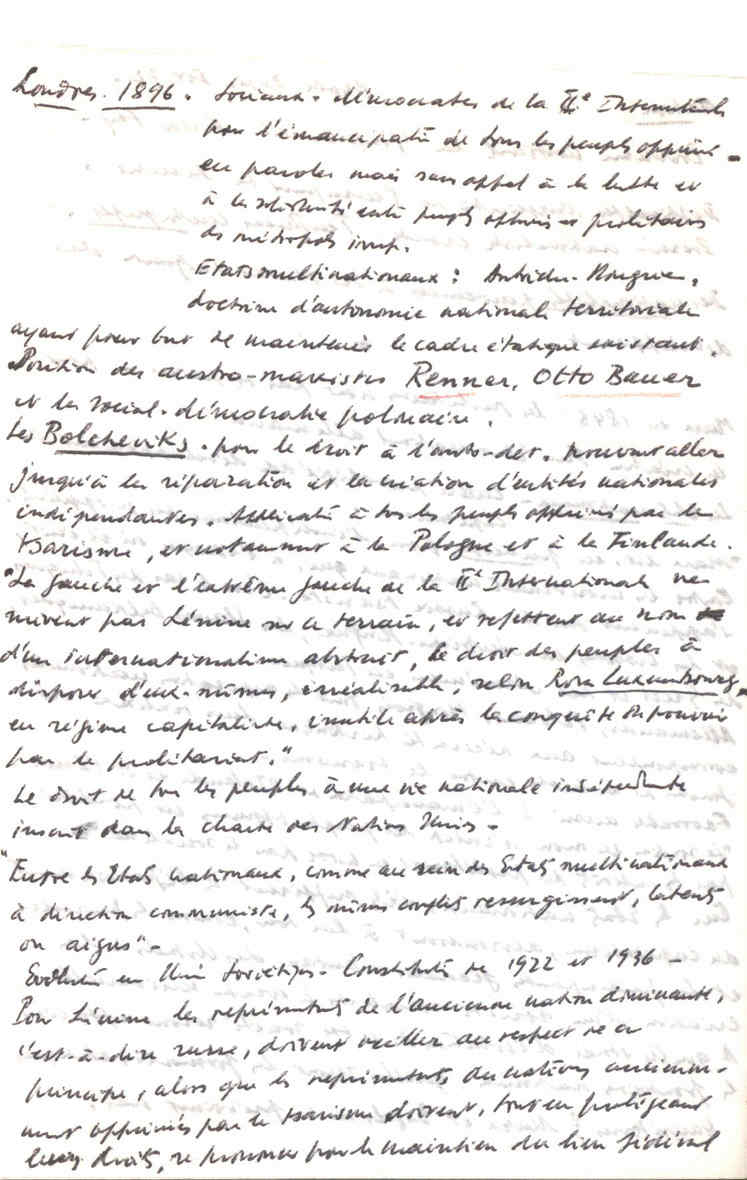 Londres. 1896. Sociaux-démocrates de la IIe Internationale
pour l'émancipatn de tous les peuples opprimés
en paroles mais sans appel à la lutte et
à la solidarité entre peuples opprimés et prolétaires
des métropoles
Etats multinationaux : Autriche-Hongrie,
doctrine d'autonomie nationale territoriale
ayant pour but de maintenir le cadre étatique existant.
Position des austro-marxistes Renner, Otto Bauer
et la social-démocratie polonaise.
Les Bolcheviks. pour le droit à l'auto-det. pouvant aller
jusqu'à la séparation et la création d'entités nationales
indépendantes. à tous les peuples opprimés par le
tsarisme, et notamment à la Pologne et à la Finlande.
"La gauche et l'extrême gauche de la IIe Internationale ne
suivent pas Lénine sur ce terrain, et rejettent au nom
d'un internationalisme abstrait, le droit des peuples à
disposer d'eux-mêmes, irréalisable, selon Rosa Luxembourg,
en régime capitaliste, inutile après la conquête du pouvoir
par le prolétariat."
Le droit de tous les peuples à une vie nationale indépendante
inscrit dans la charte des Nations Unies -
"Entre les Etats nationaux, comme au sein des Etats multinationaux
à direction communiste, les mêmes conflits resurgissent, latents
ou aigus" -
Evolutn en Union Soviétique - Constitutn de 1922 et 1936 -
Pour Lénine les représentants de l'ancienne nation dominante,
c'est-à-dire russe, doivent veiller au respect de ce
principe, alors que les représentants des nations ancienne-
ment opprimées par le tsarisme doivent, tout en protégeant
leurs droits, se prononcer pour le maintien du lien fédéral